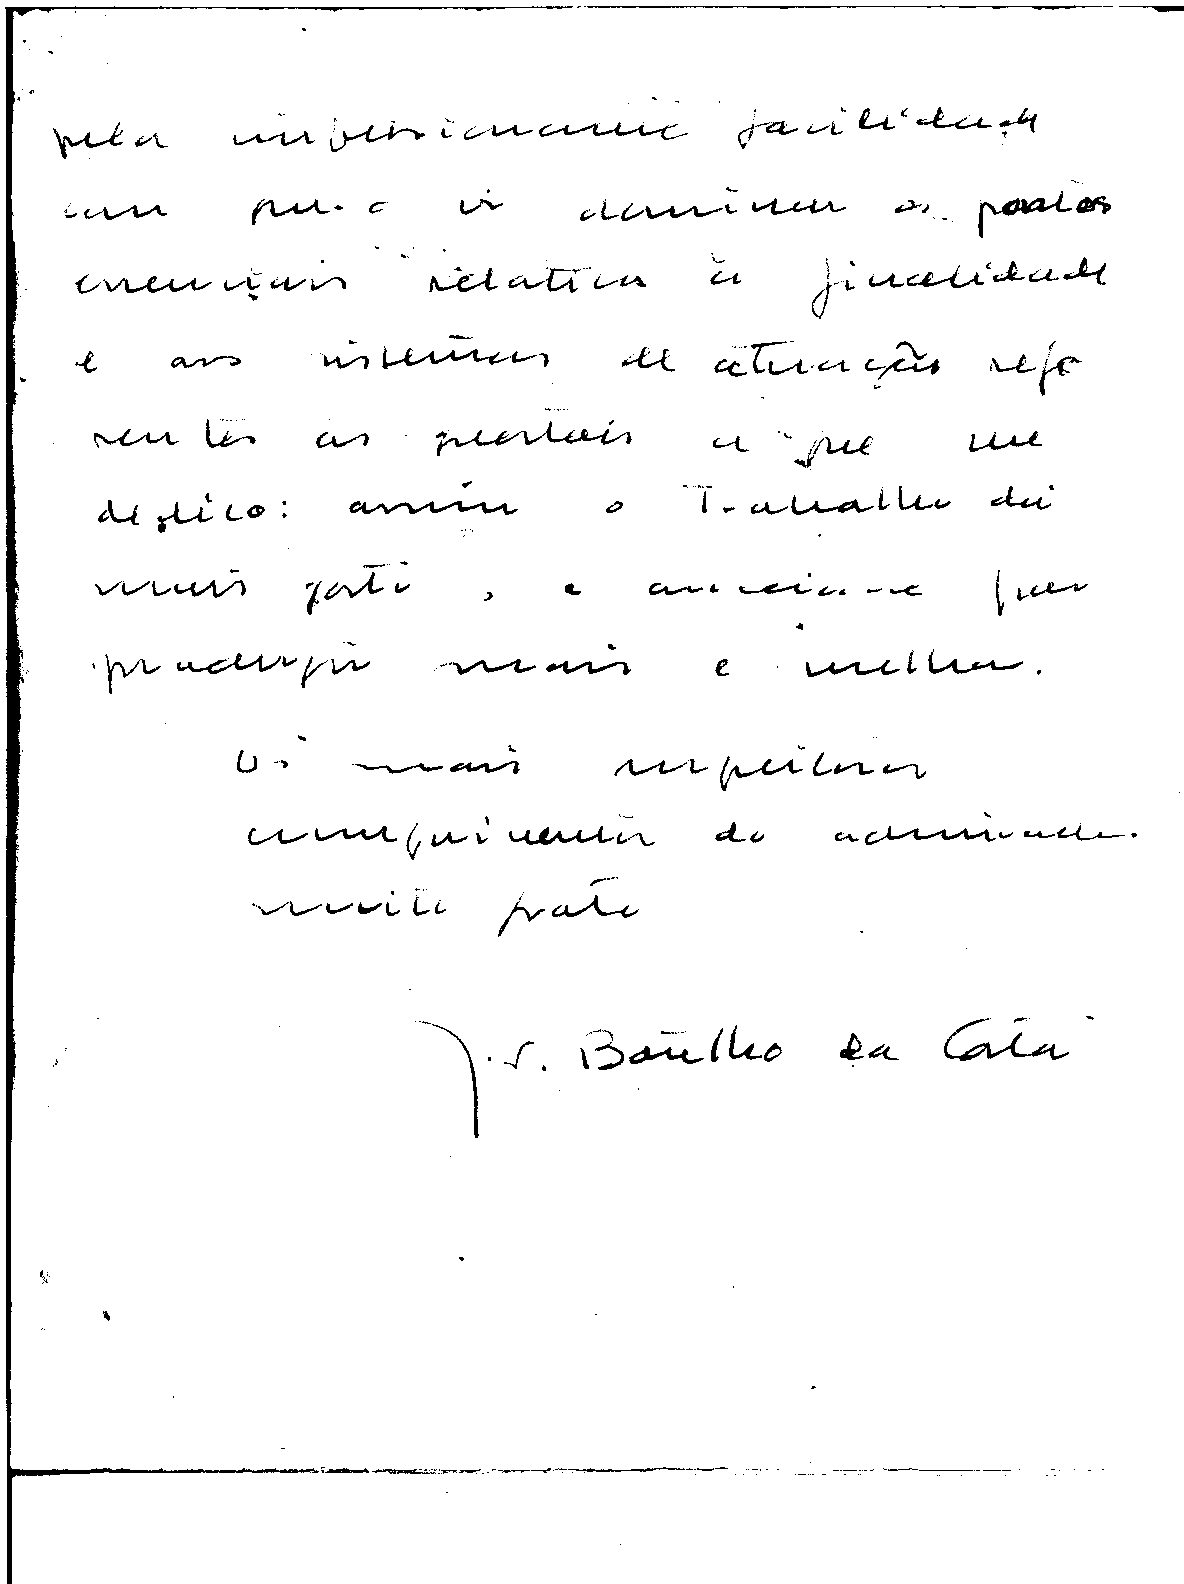 pela impressionante facilidade
com que o vi dominar os pontos
essenciais relativos à finalidade
e aos sistemas de atuação refe
rentes às questões a que me
dedico: assim o trabalho dá
mais gosto, e a gente quer
produzir mais e melhor.
Os mais respeitosos
cumprimentos do admirador
muito grato
J. S. Botelho da Costa